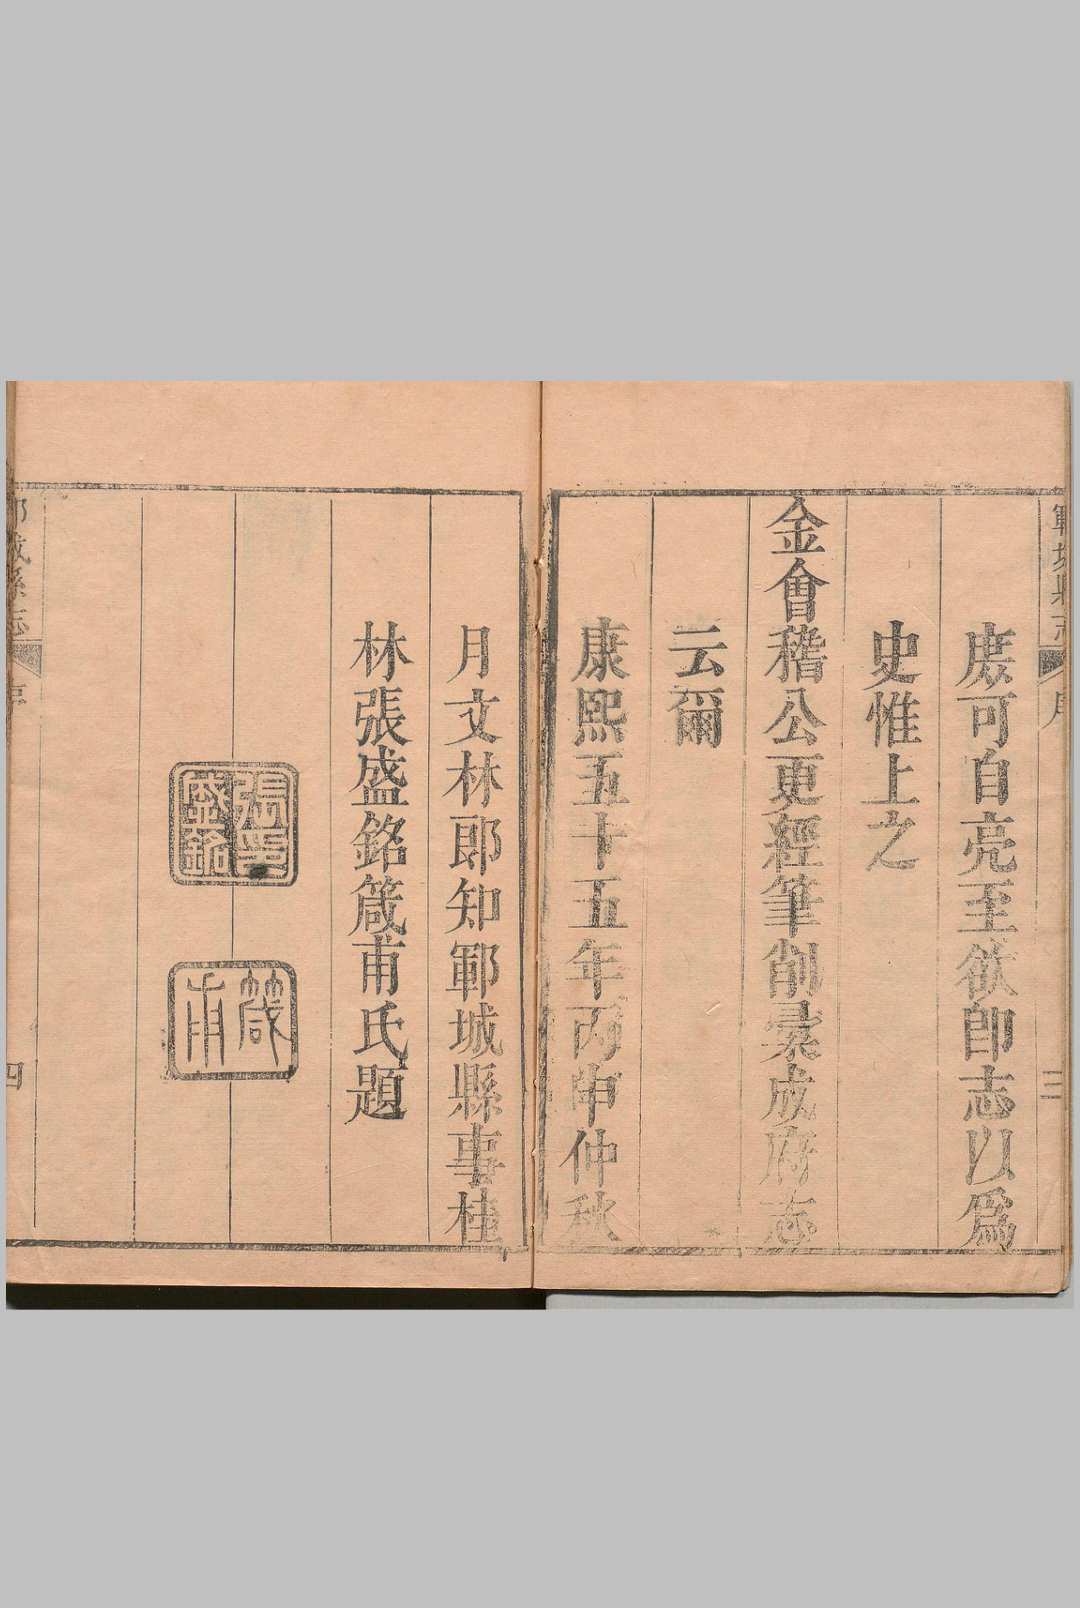 鄆城縣志 序 三
庻可自亮至欲卽志以爲
史惟上之
金會稽公更經筆削彚成府志
云爾
康熙五十五年丙申仲秋
月文林郎知鄆城縣事桂
林張盛銘箴甫氏題
張印盛銘
箴甫
鄆城縣志 序 四